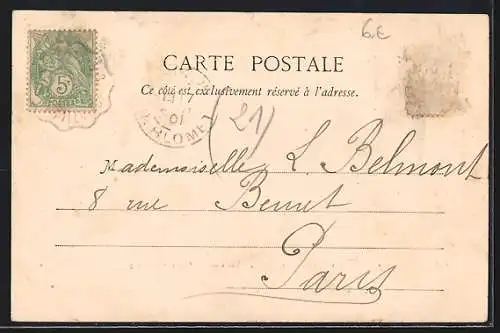 6€
CARTE POSTALE
Ce côté est exclusivement réservé à l'adresse.
5
17
01
(21)
Mademoiselle L Belmont
8 rue
Paris